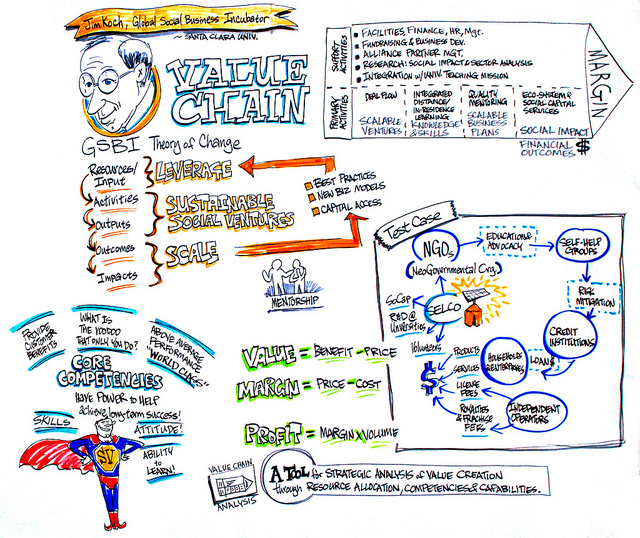 Jim Koch, Global Social Business Incubator
~ SANTA CLARA UNIV.
VALUE
CHAIN
SUPPORT
ACTIVITIES
• FACILITIES, FINANCE, HR, Mgt.
• FUNDRAISING & BUSINESS DEV.
• ALLIANCE PARTNER MGT.
• RESEARCH: SOCIAL IMPACT & SECTOR ANALYSIS
• INTEGRATION w/ UNIV. TEACHING MISSION
PRIMARY
ACTIVITIES
DEAL FLOW
SCALABLE
VENTURES
INTEGRATED
DISTANCE/
IN-RESIDENCE
LEARNING
KNOWLEDGE
& SKILLS
QUALITY
MENTORING
SCALABLE
BUSINESS
PLANS
ECO-SYSTEM &
SOCIAL CAPITAL
SERVICES
SOCIAL IMPACT
FINANCIAL
OUTCOMES $
MARGIN
GSBI Theory of Change
Resources/
Input
Activities
Outputs
Outcomes
Impacts
LEVERAGE
SUSTAINABLE
SOCIAL VENTURES
SCALE
BEST PRACTICES
NEW BIZ MODELS
CAPITAL ACCESS
MENTORSHIP
Test Case
NGOs
(NeoGovernmental Org.)
EDUCATION &
ADVOCACY
SELF-HELP
GROUPS
RISK
MITIGATION
CREDIT
INSTITUTIONS
LOANS
HOUSEHOLDS
SELCO
SoCap
R&D @
Universities
Volunteers
$
PRODUCTS
SERVICES
LICENSE
FEES
ROYALTIES
& FRACHISE
FEES
INDEPENDENT
OPERATORS
PROVIDE
CUSTOMER
BENEFITS
WHAT IS
THE VOODOO
THAT ONLY YOU DO?
ABOVE AVERAGE
PERFORMANCE
"WORLD CLASS"
CORE
COMPETENCIES
HAVE POWER TO HELP
achieve long-term success!
SKILLS
ATTITUDE!
ABILITY
to
LEARN!
SV
VALUE = BENEFIT - PRICE
MARGIN = PRICE - COST
PROFIT = MARGIN X VOLUME
VALUE CHAIN
ANALYSIS
A TOOL for STRATEGIC ANALYSIS of VALUE CREATION
through RESOURCE ALLOCATION, COMPETENCIES & CAPABILITIES.